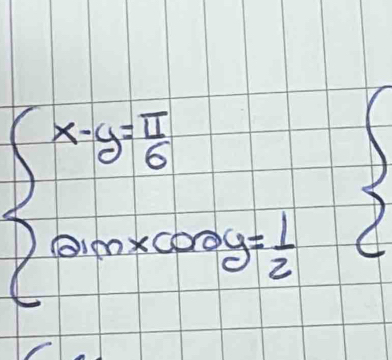 x-y=π/6
sinxcosy=1/2